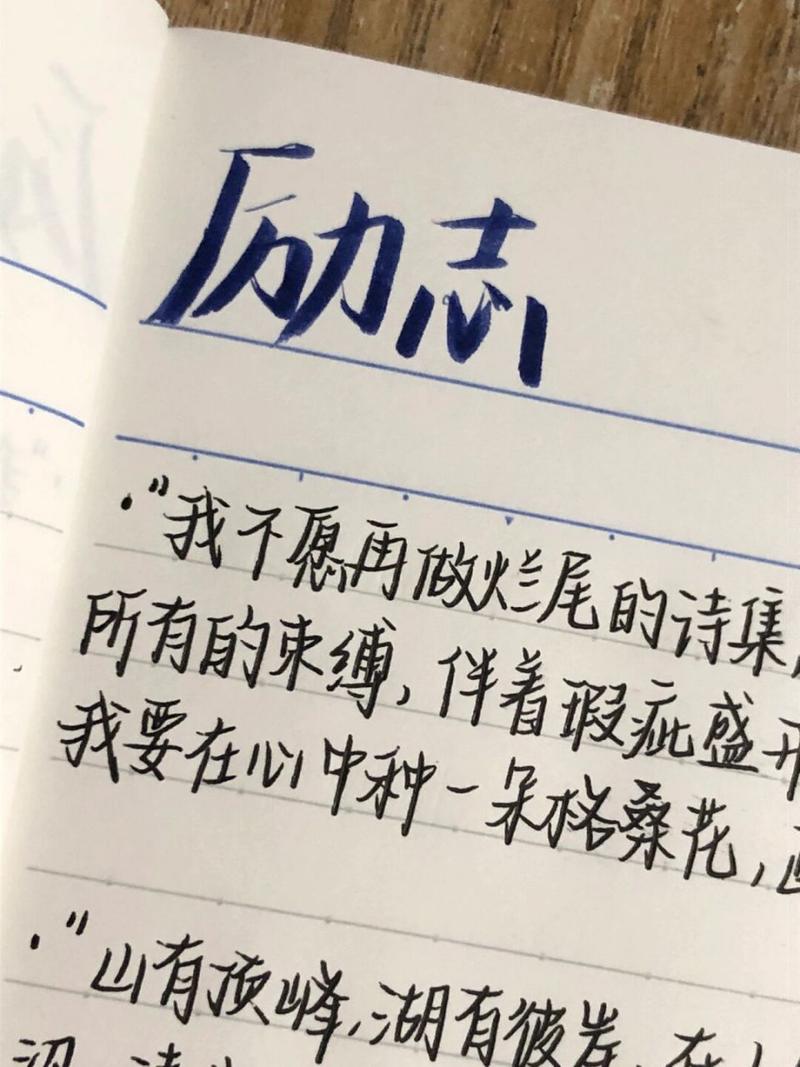 励志
·"我不愿再做烂尾的诗集,
所有的束缚,伴着瑕疵盛开
我要在心中种一朵格桑花,
·"山有顶峰,湖有彼岸,在人